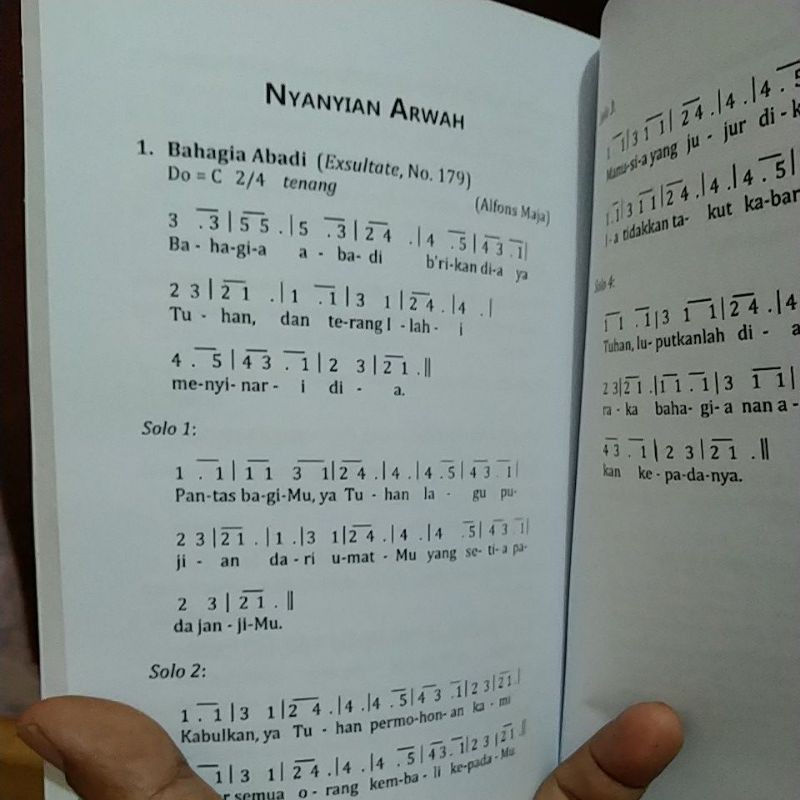 NYANYIAN ARWAH
1. Bahagia Abadi (Exsultate, No. 179)
Do = C 2/4 tenang
(Alfons Maja)
3 .3 | 5 5 . | 5 .3 | 2 4 . | 4 .5 | 4 3 .1 |
Ba - ha-gi-a a - ba- di b'ri-kan di-a ya
2 3 | 2 1 . | 1 .1 | 3 1 | 2 4 . | 4 . |
Tu - han, dan te-rang I - lah - i
4 . 5 | 4 3 . 1 | 2 3 | 2 1 . ||
me-nyi- nar - i di - a.
Solo 1:
1 . 1 | 1 1 3 1 | 2 4 . | 4 . | 4 .5 | 4 3 .1 |
Pan-tas ba-gi-Mu, ya Tu - han la - gu pu-
2 3 | 2 1 . | 1 . | 3 1 | 2 4 . | 4 . | 4 .5 | 4 3 .1 |
ji - an da - ri u-mat - Mu yang se- ti- a pa-
2 3 | 2 1 . ||
da jan - ji-Mu.
Solo 2:
1 . 1 | 3 1 | 2 4 . | 4 . | 4 .5 | 4 3 .1 | 2 3 | 2 1 . |
Kabulkan, ya Tu - han permo-hon- an ka - mi
1 | 3 1 | 2 4 . | 4 . | 4 .5 | 4 3 .1 | 2 3 | 2 1 . ||
semua o - rang kem-ba - li ke-pada - Mu
1 | 3 1 1 | 2 4 . | 4 . | 4 . 5
Manu-si-a yang ju - jur di - k
1 .1 | 3 1 1 | 2 4 . | 4 . | 4 . 5 |
tidakkan ta- kut ka-bar
Solo 4:
1 1 .1 | 3 1 1 | 2 4 . | 4
Tuhan, lu- putkanlah di - a
2 3 | 2 1 . | 1 1 . 1 | 3 1 1 |
ra - ka baha- gi- a nan a -
4 3 . 1 | 2 3 | 2 1 . ||
kan ke - pa-da-nya.